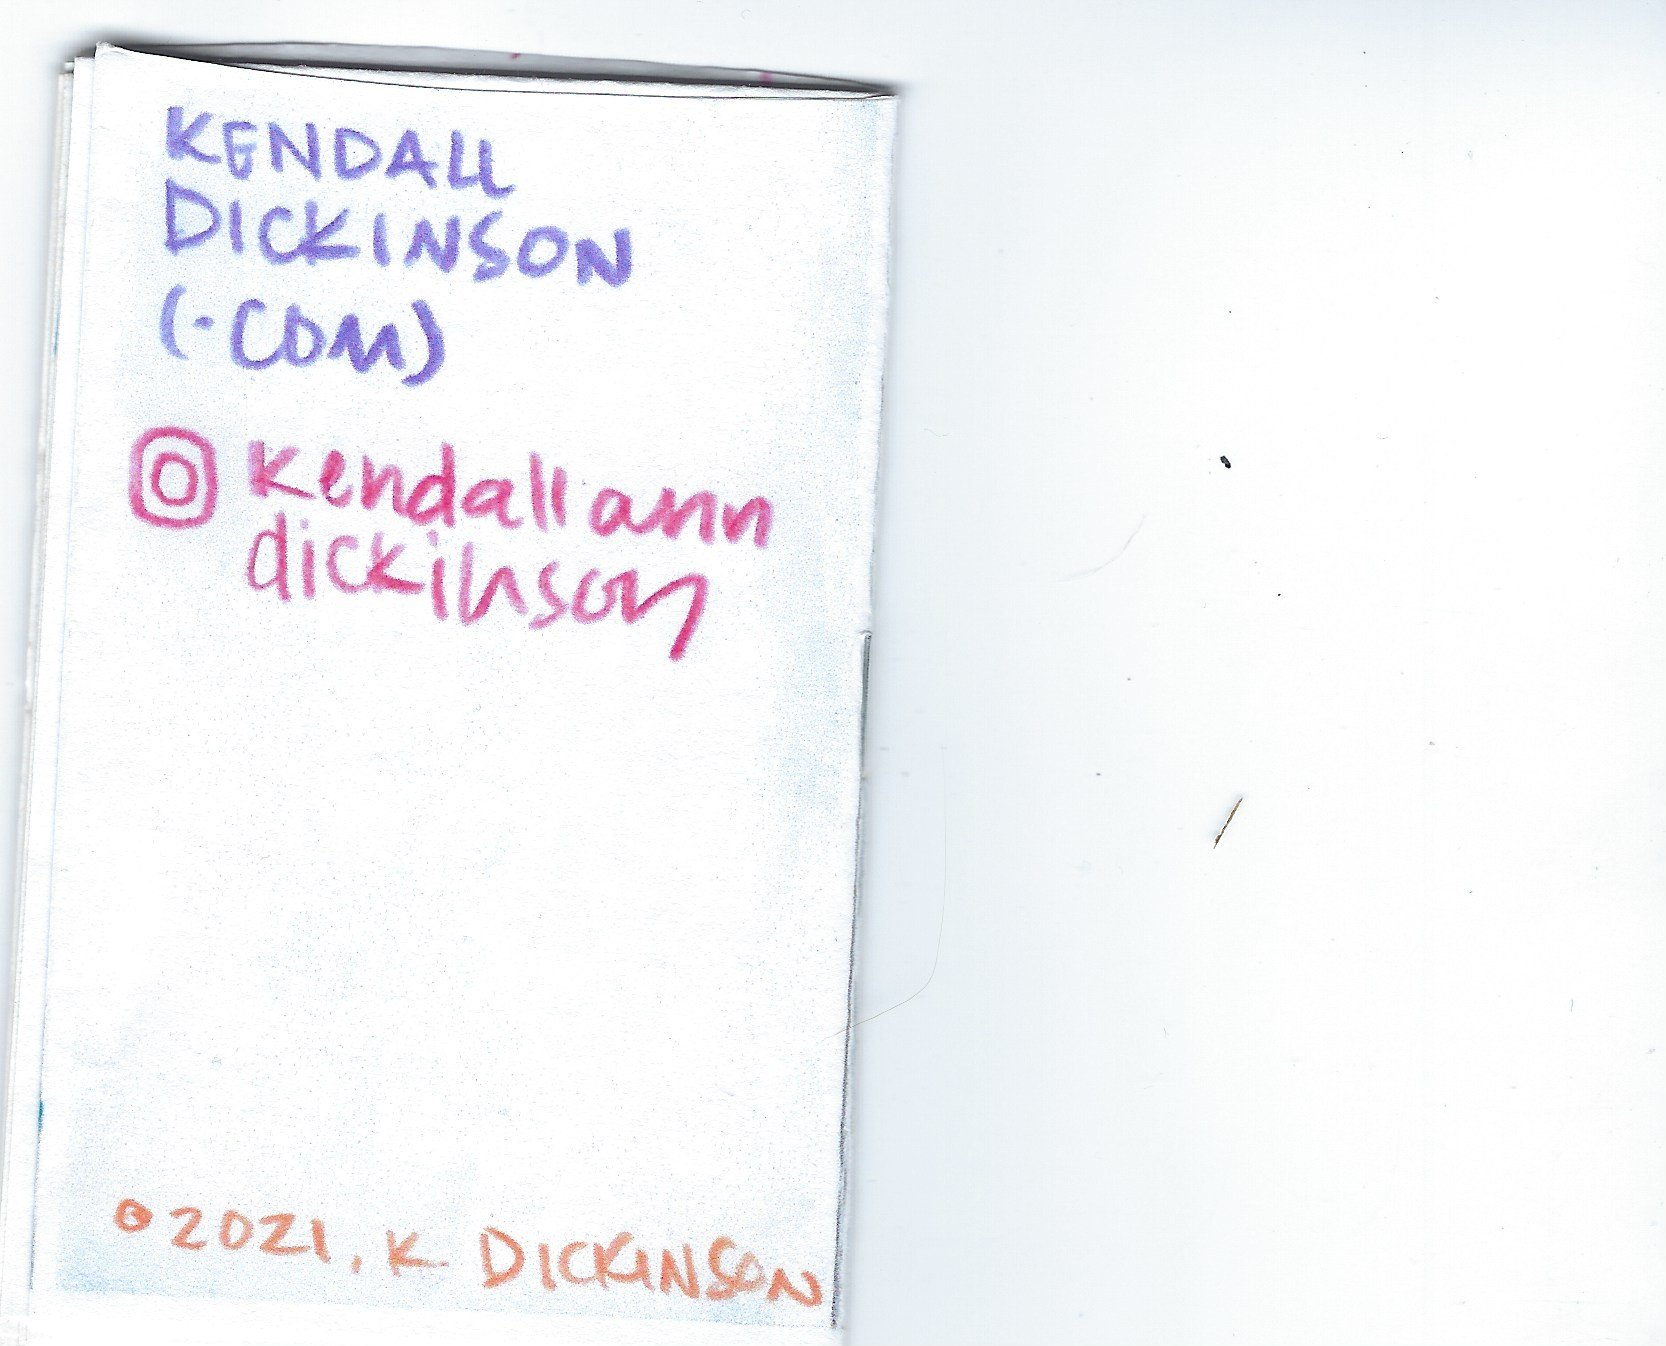 KENDALL
DICKINSON
(.COM)
kendallann
dickinson
© 2021, K DICKINSON